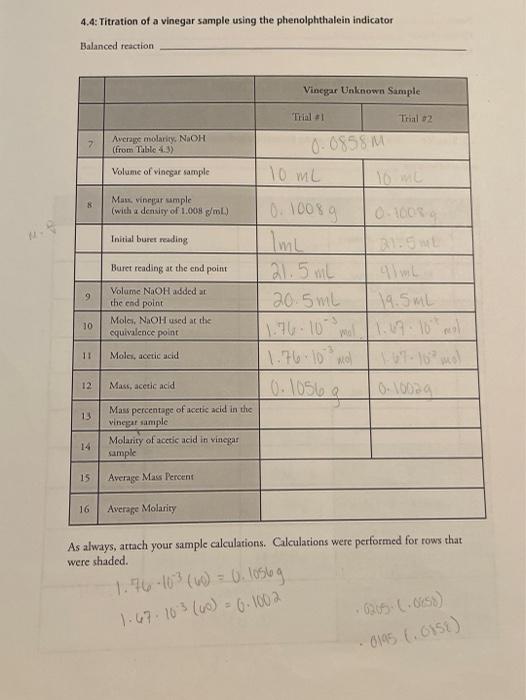 4.4: Titration of a vinegar sample using the phenolphthalein indicator
Balanced reaction
Vinegar Unknown Sample
Trial #1 Trial #2
7 Average molarity, NaOH (from Table 4.3) 0.0858 M
Volume of vinegar sample 10 mL 10 mL
8 Mass, vinegar sample (with a density of 1.008 g/mL) 0.1008 g 0.1008 g
Initial buret reading 1mL 21.5 mL
Buret reading at the end point 21.5 mL 41mL
9 Volume NaOH added at the end point 20.5mL 19.5mL
10 Moles, NaOH used at the equivalence point 1.76·10⁻³ mol 1.67·10⁻³ mol
11 Moles, acetic acid 1.76·10⁻³ mol 1.67·10⁻³ mol
12 Mass, acetic acid 0.1056 g 0.1002g
13 Mass percentage of acetic acid in the vinegar sample
14 Molarity of acetic acid in vinegar sample
15 Average Mass Percent
16 Average Molarity
As always, attach your sample calculations. Calculations were performed for rows that
were shaded.
1.76·10⁻³ (60) = 0.1056g
1.67·10⁻³ (60) = 0.1002
.0205·(.0858)
.0195 (.0858)